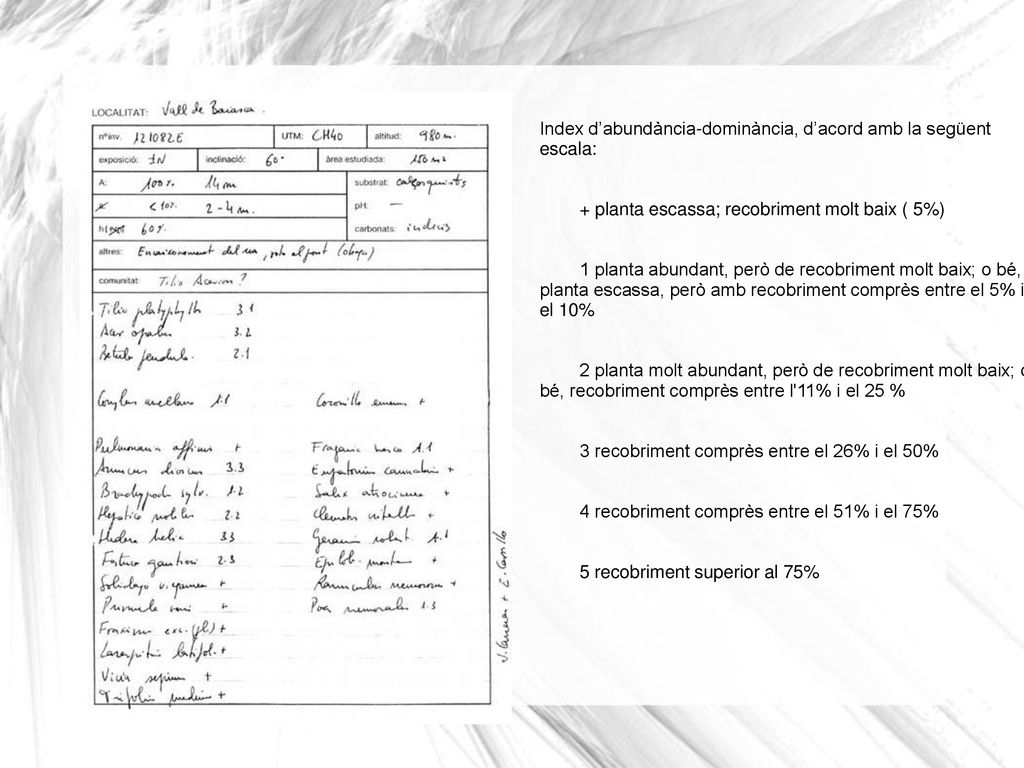 LOCALITAT: Vall de Baiasca.
nºinv. 121082E UTM: CH40 altitud: 980 m.
exposició: 1N inclinació: 60° àrea estudiada: 150 m2
A: 100%. 14 m substrat: calçosquists
<10% 2-4 m. pH: —
h 60%. carbonats: indicis
altres: Encaixonament del riu, sota el pont (obaga)
comunitat: Tilio Acerion?
Tilia platyphyllos 3.1
Acer opalus 3.2
Betula pendula. 2.1
Corylus avellana 1.1 Coronilla emerus +
Pulmonaria affinis + Fragaria vesca 1.1
Aruncus dioicus 3.3 Eupatorium cannabin +
Brachypod sylv. 1.2 Salix atrocinerea +
Hepatica nobilis 2.2 Clematis vitalb +
Hedera helix 3.3 Geranium robert. 1.1
Festuca gautieri 2.3 Epilob. montan +
Solidago virgaurea + Ranunculus nemorosus +
Primula veris + Poa nemoralis 1.3
Fraxinus exc.(pl) +
Laserpitium latifol. +
Vicia sepium +
Trifolium medium +
E. Carrillo
Index d'abundància-dominància, d'acord amb la següent
escala:
+ planta escassa; recobriment molt baix ( 5%)
1 planta abundant, però de recobriment molt baix; o bé,
planta escassa, però amb recobriment comprès entre el 5% i
el 10%
2 planta molt abundant, però de recobriment molt baix; o
bé, recobriment comprès entre l'11% i el 25 %
3 recobriment comprès entre el 26% i el 50%
4 recobriment comprès entre el 51% i el 75%
5 recobriment superior al 75%